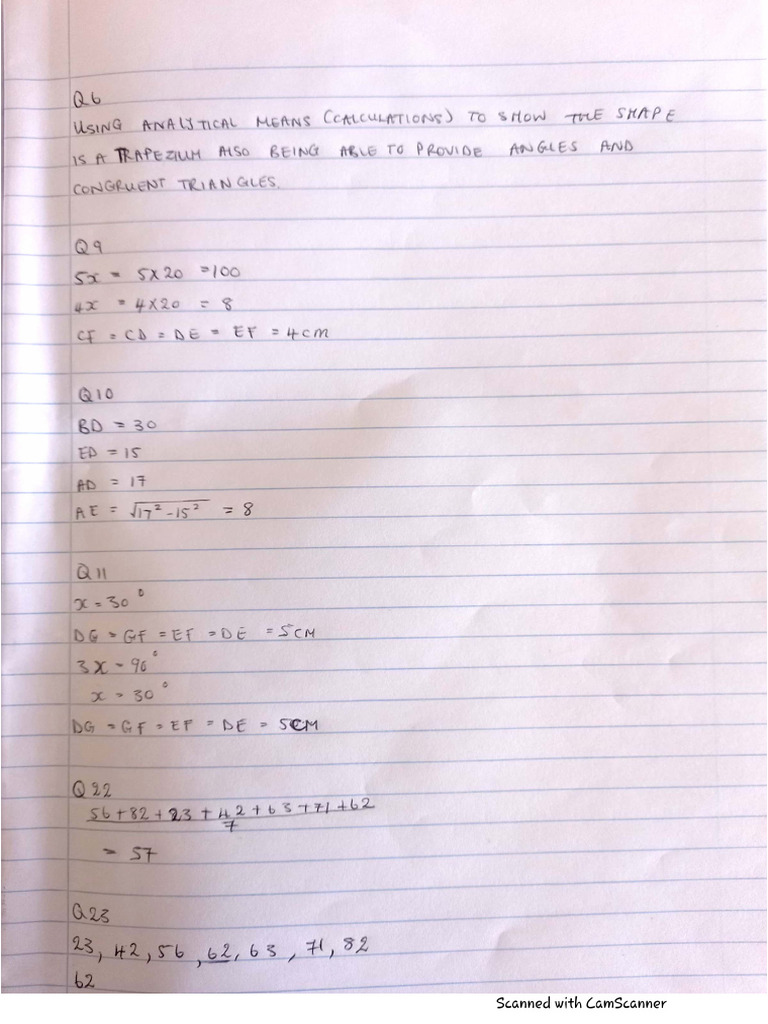 Q6
USING ANALYTICAL MEANS (CALCULATIONS) TO SHOW THE SHAPE
IS A TRAPEZIUM ALSO BEING ABLE TO PROVIDE ANGLES AND
CONGRUENT TRIANGLES.
Q9
5x = 5x20 =100
4x = 4x20 = 8
CF = CD = DE = EF = 4CM
Q10
BD = 30
ED = 15
AD = 17
AE = √17² -15² = 8
Q11
x = 30°
DG = GF = EF = DE = 5CM
3x = 90°
x = 30°
DG = GF = EF = DE = 5CM
Q22
56+82+23+42+63+71+62
7
= 57
Q23
23, 42, 56, 62, 63, 71, 82
62
Scanned with CamScanner